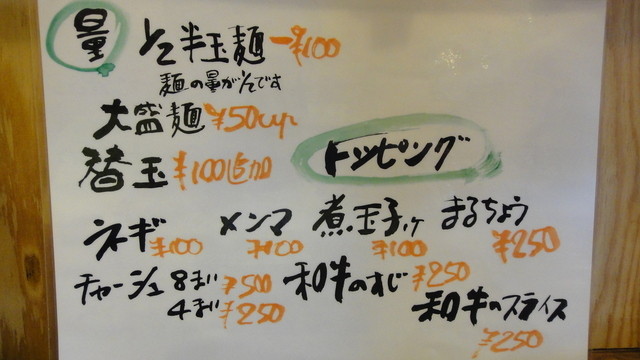 量 1/2半玉麺 -¥100
麺の量が1/2です
大盛麺 ¥50up
替玉 ¥100追加
トッピング
ネギ ¥100
メンマ ¥100
煮玉子1ヶ ¥100
まるちょう ¥250
チャーシュ 8まい ¥500
4まい ¥250
和牛のすじ ¥250
和牛のスライス ¥250